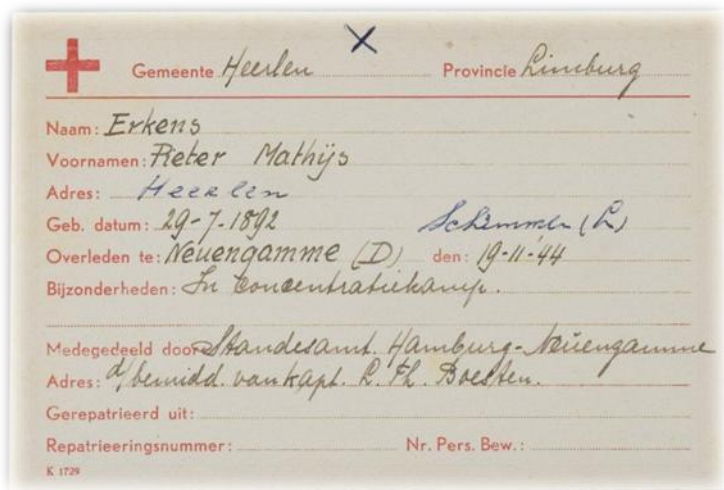 X
Gemeente Heerlen Provincie Limburg
Naam: Erkens
Voornamen: Pieter Mathijs
Adres: Heerlen
Geb. datum: 29-7-1892 Schimmen (L)
Overleden te: Neuengamme (D) den: 19-11-'44
Bijzonderheden: In concentratiekamp.
Medegedeeld door Standesamt. Hamburg-Neuengamme
Adres: d/bemidd. van kapt. L. Th. Boesten.
Gerepatrieerd uit:
Repatrieeringsnummer: Nr. Pers. Bew.:
K 1729